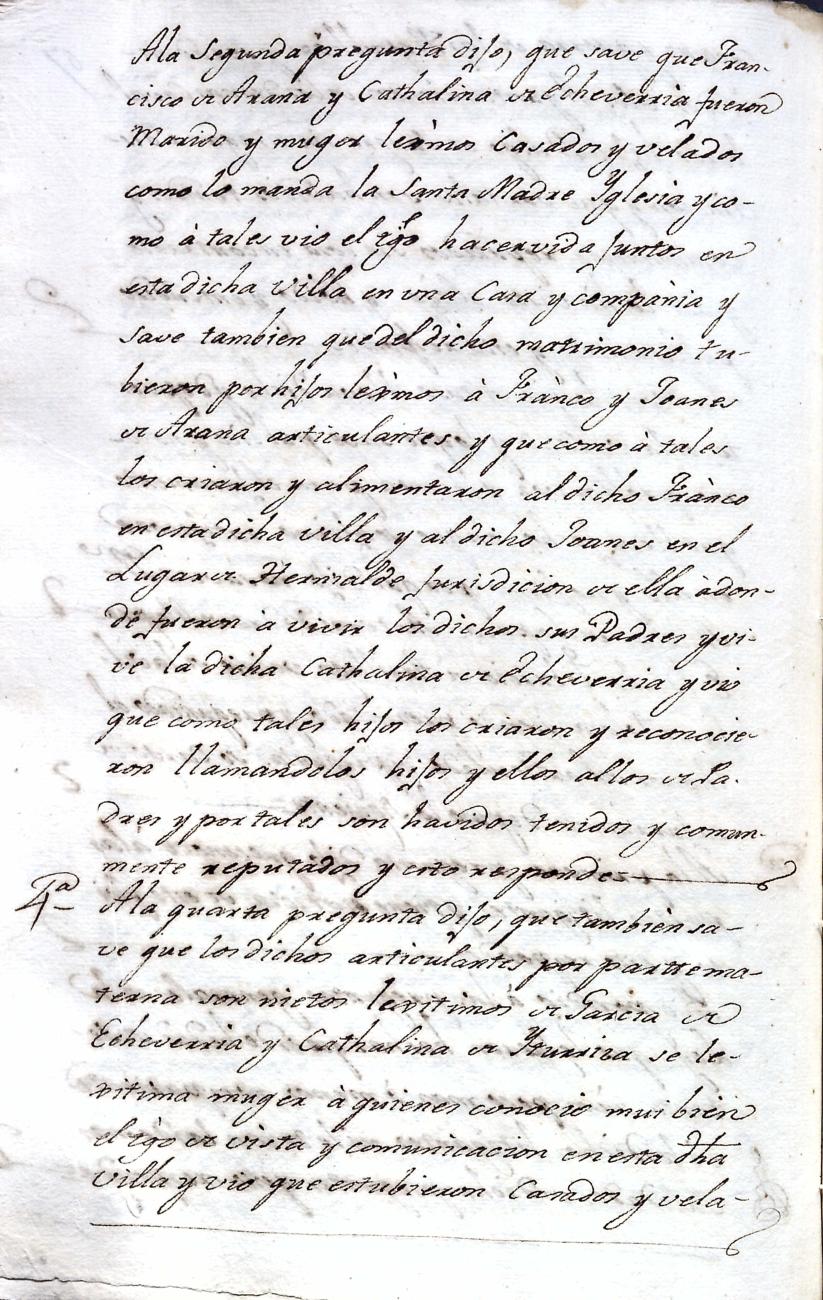 Ala Segunda pregunta dijo, que save que Fran-
cisco de Arana y Cathalina de Echeverria fueron
Marido y muger lexmos Casados y velados
como lo manda la Santa Madre Yglesia y co-
mo à tales vio el tgo hacer vida juntos en
esta dicha Villa en vna Casa y compània y
save tambien que del dicho matrimonio tu-
bieron por hijos lexmos à Frànco y Joanes
de Arana articulantes y que como à tales
los criaron y alimentaron al dicho Frànco
en esta dicha villa y al dicho Joanes en el
Lugar de Hernialde Jurisdicion de ella àdon-
de fueron à vivir los dichos sus Padres y vi-
ve la dicha Cathalina de Echeverria y vio
que como tales hijos los criaron y reconocie-
ron llamandolos hijos y ellos allos de Pa-
dres y por tales son havidos tenidos y comun-
mente reputados y esto responde
4ª Ala quarta pregunta dijo, que tambièn sa-
ve que los dichos articulantes por partte ma-
terna son nietos lexitimos de Garcia de
Echeverria y Cathalina de Yturriza se le-
xitima muger à quienes conocio mui bien
el tgo de vista y comunicacion en esta dha
Villa y vio que estubieron Casados y vela-